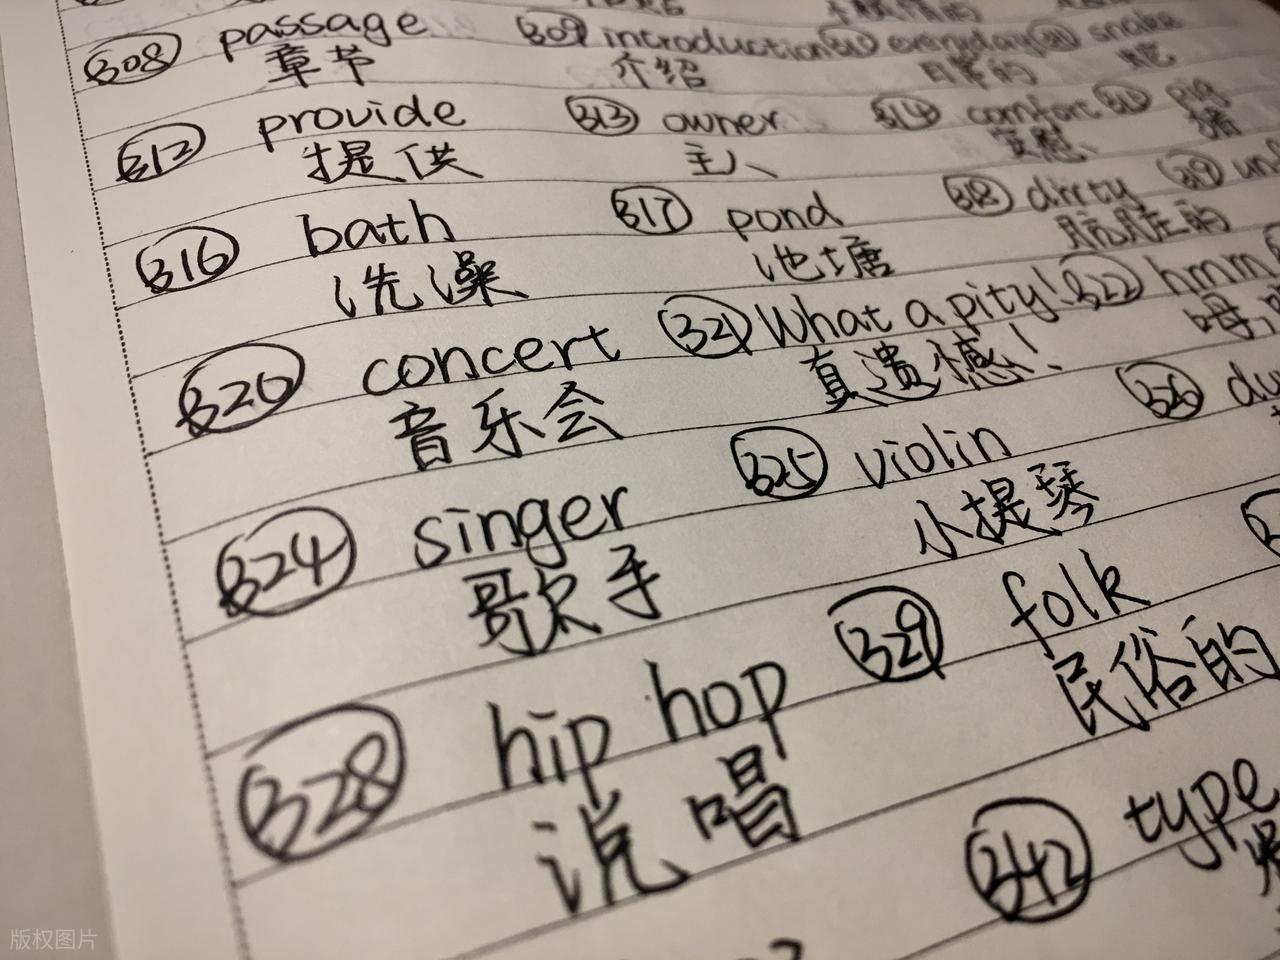 308 passage 309 introduction 310 everyday 311 snake
章节 介绍 日常的 蛇
312 provide 313 owner 314 comfort 315 pig
提供 主人 安慰 猪
316 bath 317 pond 318 dirty 319
洗澡 池塘 肮脏的
320 concert 321 What a pity! 322 hmm
音乐会 真遗憾!
324 singer 325 violin 326
歌手 小提琴
328 hip hop 329 folk
说唱 民俗的
342 type
版权图片